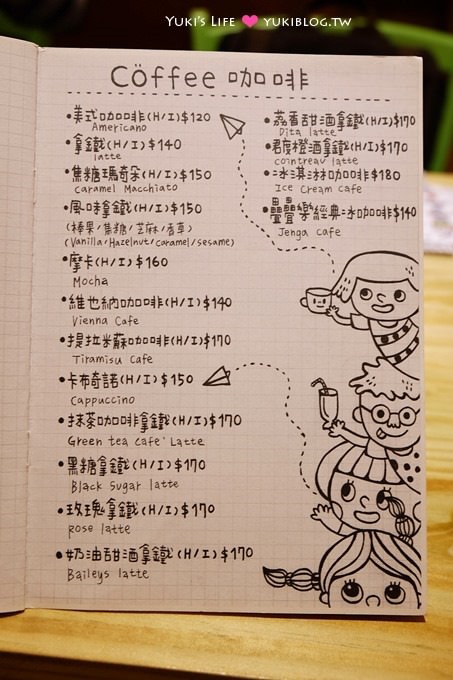 YUKI'S LIFE ♥ YUKIBLOG.TW
Cöffee 咖啡
•美式咖啡(H/I)$120
Americano
•拿鐵(H/I)$140
latte
•焦糖瑪奇朵(H/I)$150
Caramel Macchiato
•風味拿鐵(H/I)$150
(榛果/焦糖/芝麻/香草)
(Vanilla/Hazelnut/caramel/sesame)
•摩卡(H/I)$160
Mocha
•維也納咖啡(H/I)$140
Vienna Cafe
•提拉米蘇咖啡(H/I)$170
Tiramisu Cafe
•卡布奇諾(H/I)$150
Cappuccino
•抹茶咖啡拿鐵(H/I)$170
Green tea cafe' Latte
•黑糖拿鐵(H/I)$170
Black Sugar latte
•玫瑰拿鐵(H/I)$170
rose latte
•奶油甜酒拿鐵(H/I)$170
Baileys latte
•荔香甜酒拿鐵(H/I)$170
Dita latte
•君度橙酒拿鐵(H/I)$170
cointreau latte
•冰淇淋咖啡$180
Ice Cream cafe
•疊疊樂經典冰咖啡$140
Jenga Cafe